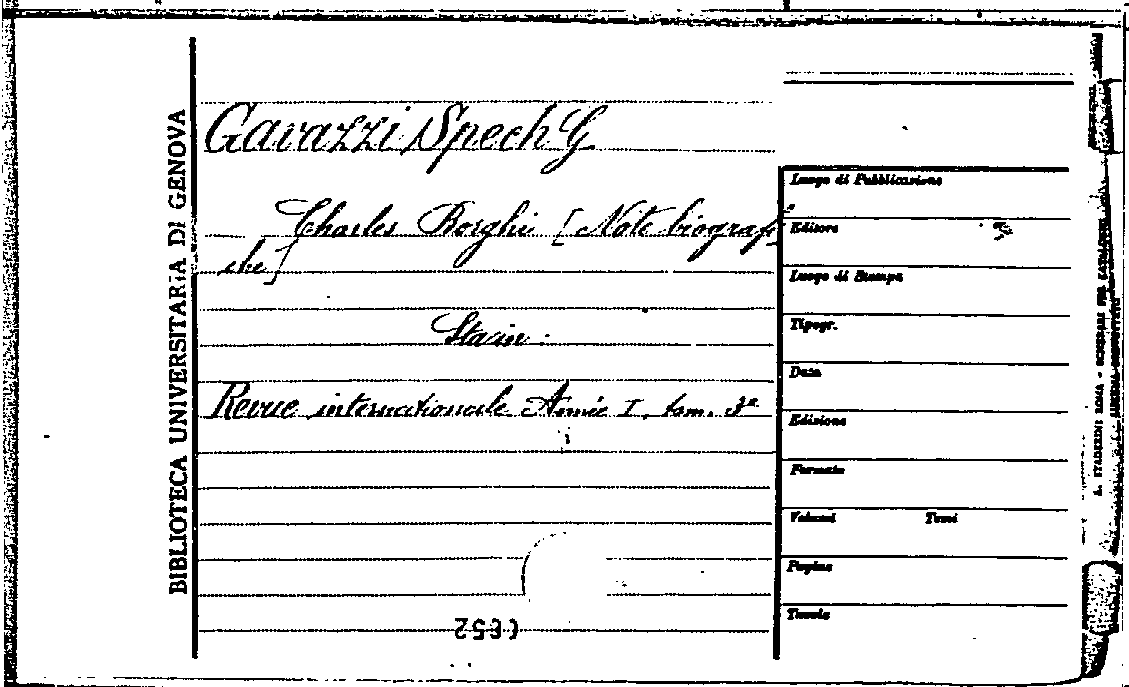 BIBLIOTECA UNIVERSITARIA DI GENOVA
Gavazzi Spech G
Charles Borghi [Note biografi
che]
Sta in:
Revue internationale Année I, tom. 3º
Luogo di Pubblicazione
Editore
Luogo di Stampa
Tipogr.
Data
Edizione
Formato
Volumi Tomi
Pagine
Tavole
A. STADERINI ROMA